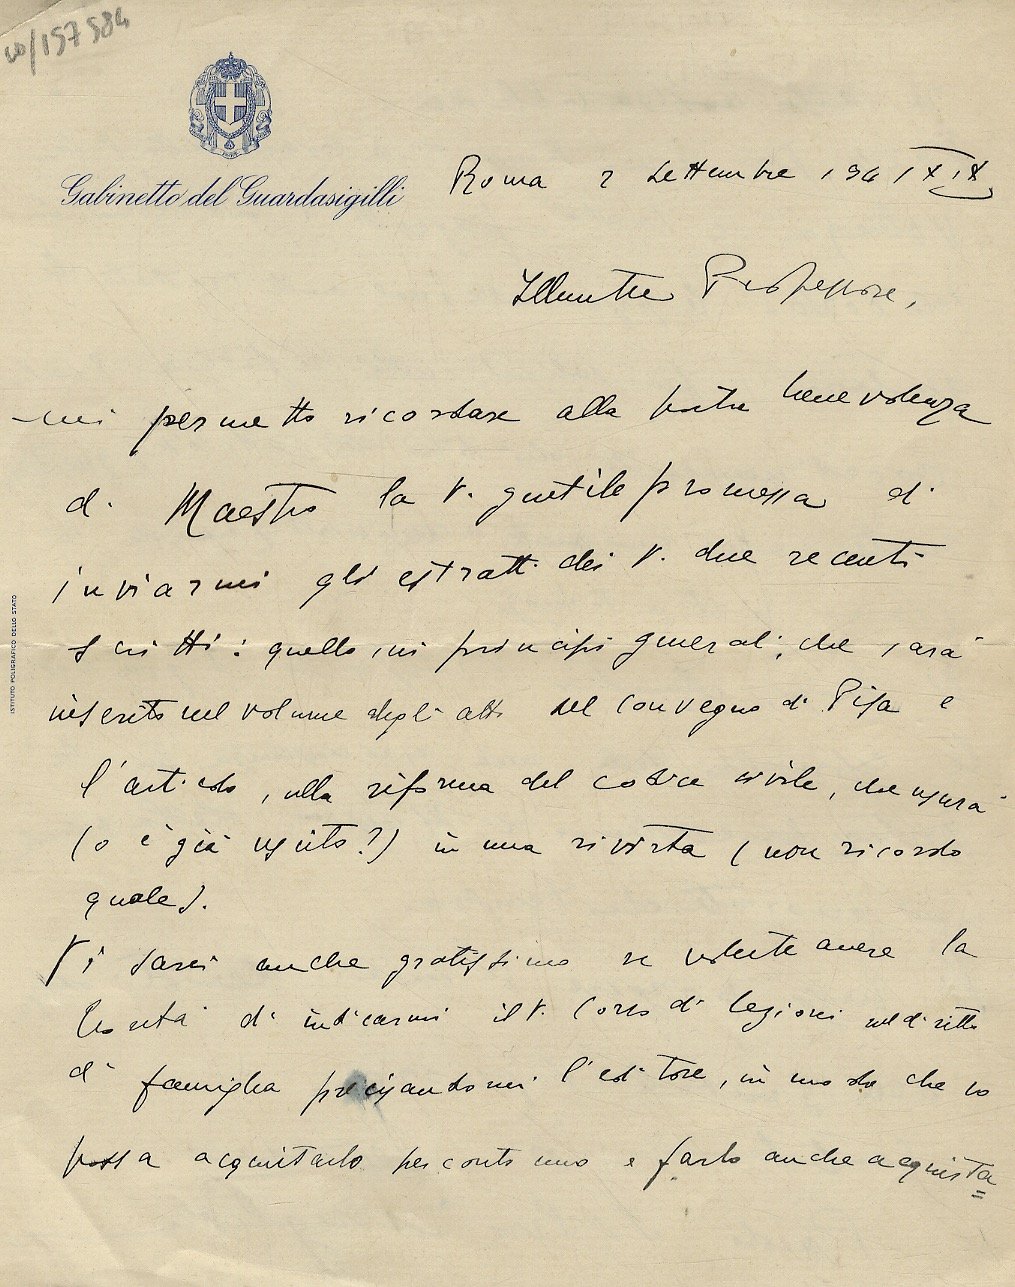 60/157584
Gabinetto del Guardasigilli
Roma 2 Settembre 1941 XIX
Illustre Professore,
mi permetto ricordare alla vostra benevolenza
di Maestro la V. gentile promessa di
inviarmi gli estratti dei V. due recenti
scritti: quello sui principi generali, che sarà
inserito nel volume degli atti del convegno di Pisa e
l'articolo sulla riforma del codice civile, che uscirà
(o è già uscito?) in una rivista (non ricordo
quale).
Vi sarei anche gratissimo se voleste avere la
bontà di indicarmi il V. Corso di lezioni sul diritto
di famiglia precisandomi l'editore, in modo che io
possa acquistarlo per conto mio e farlo anche acquista=
ISTITUTO POLIGRAFICO DELLO STATO